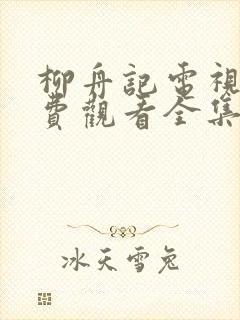 柳舟記電視
費觀看全集
冰天雪兔